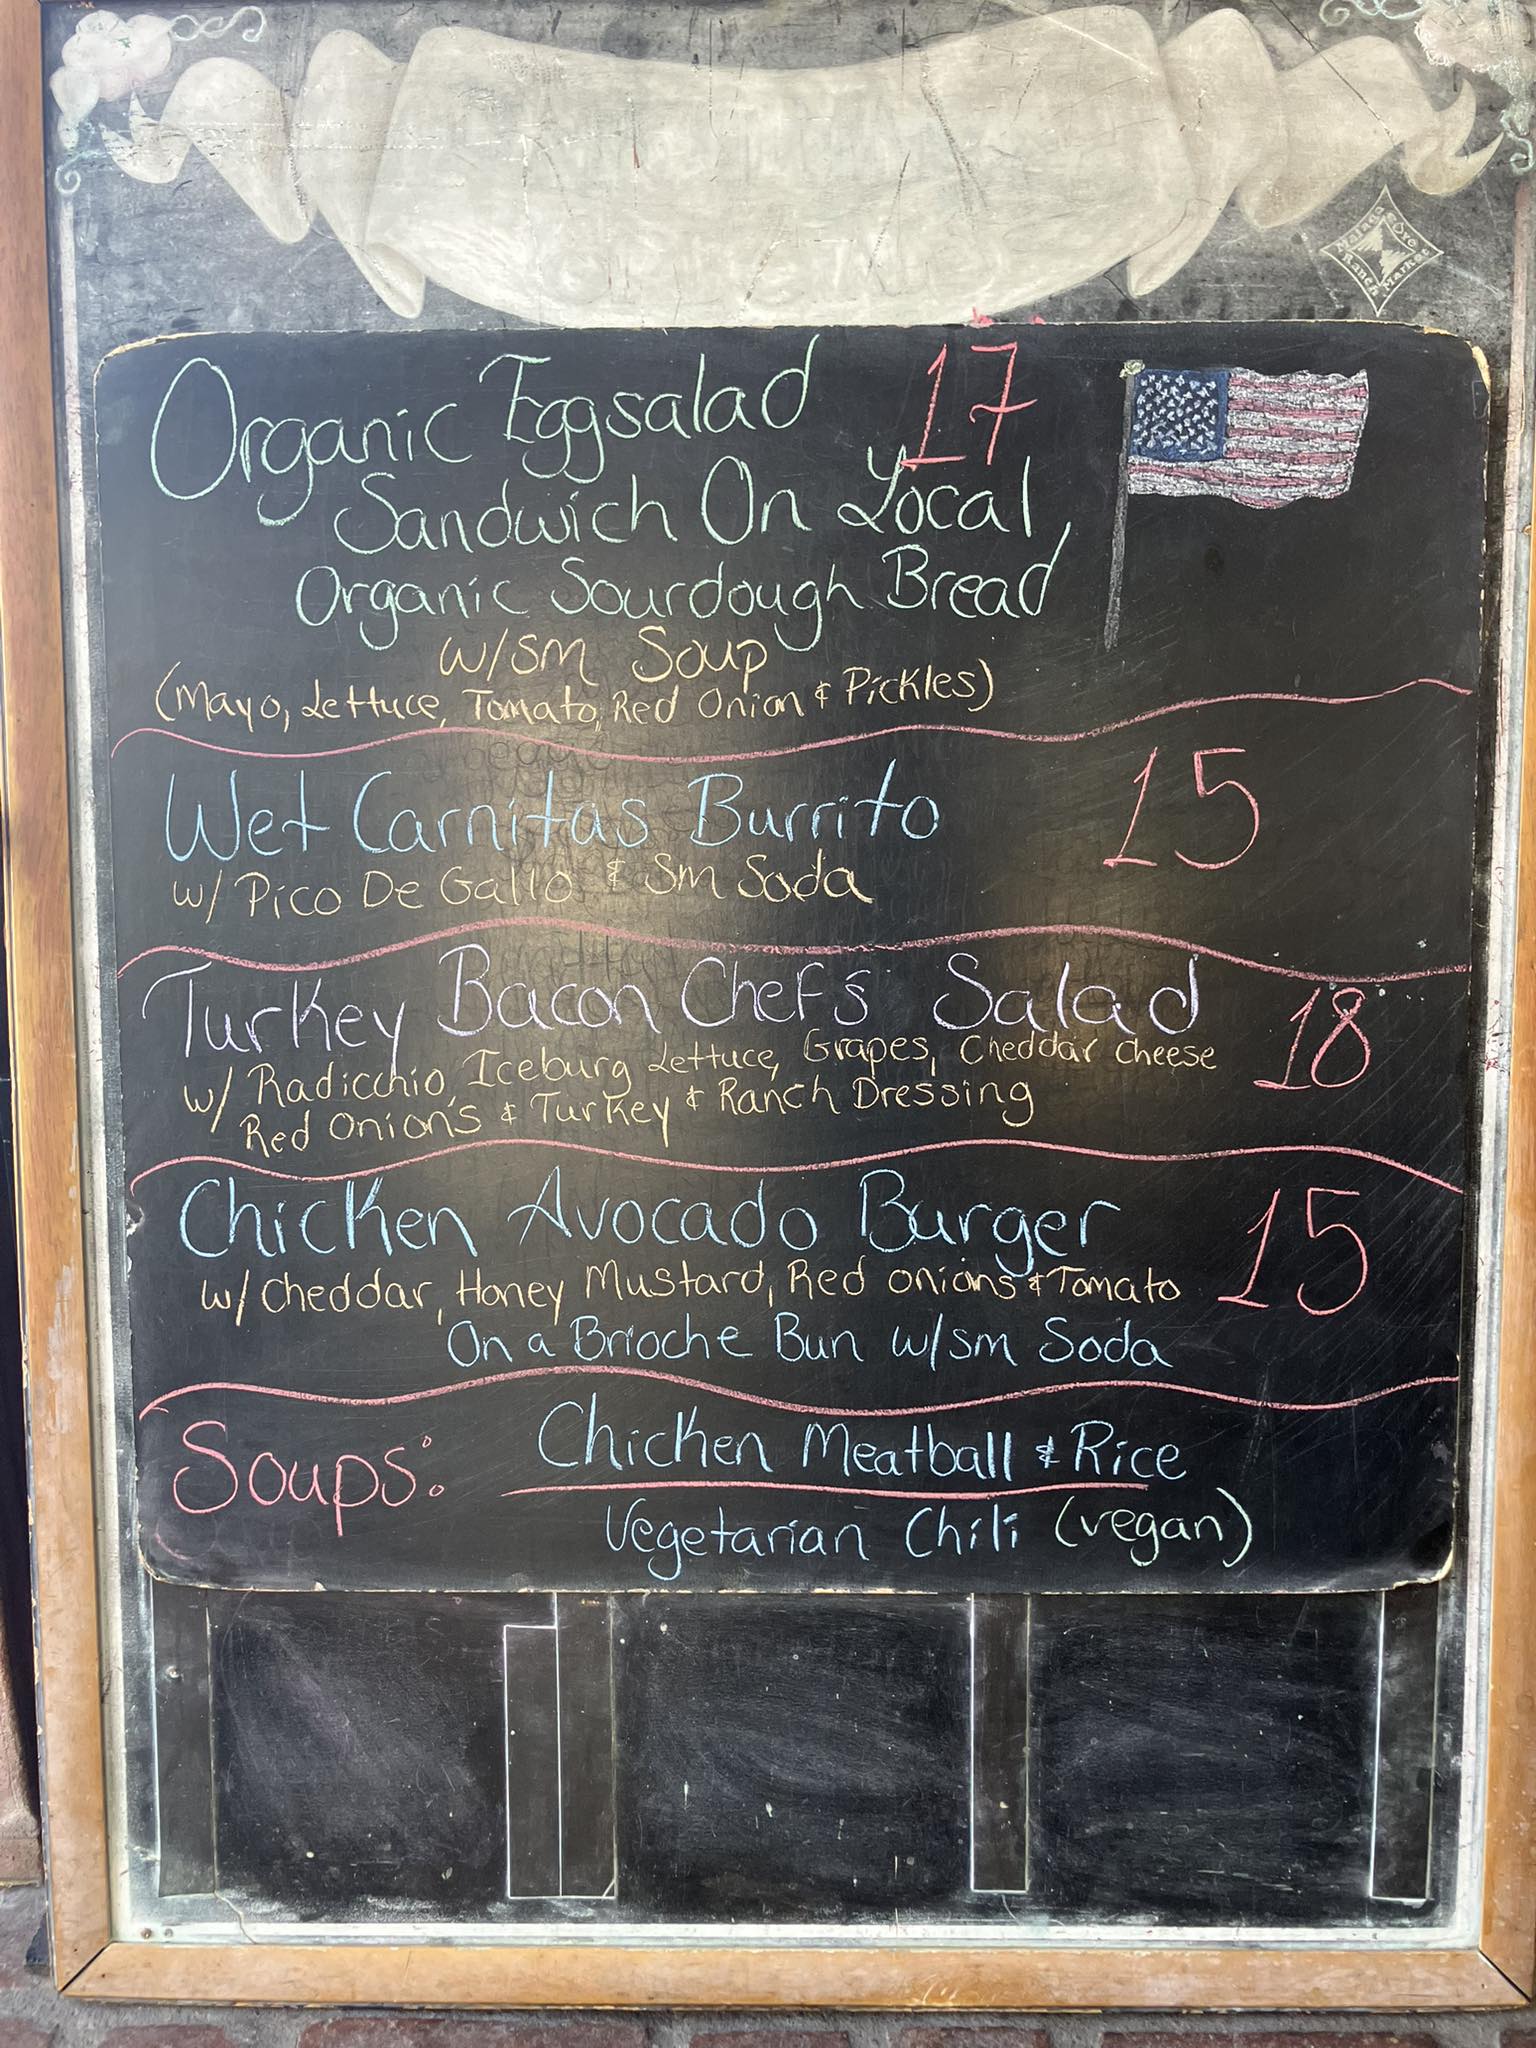 Malaga Cove
Ranch Market
Organic Eggsalad 17
Sandwich On Local,
Organic Sourdough Bread
w/sm Soup
(Mayo, Lettuce, Tomato, Red Onion & Pickles)
Wet Carnitas Burrito 15
w/ Pico De Gallo & Sm Soda
Turkey Bacon Chef's Salad 18
w/ Radicchio, Iceburg Lettuce, Grapes, Cheddar Cheese
Red Onion's & Turkey & Ranch Dressing
Chicken Avocado Burger 15
w/ Cheddar, Honey Mustard, Red Onions & Tomato
On a Brioche Bun w/sm Soda
Soups: Chicken Meatball & Rice
Vegetarian Chili (vegan)